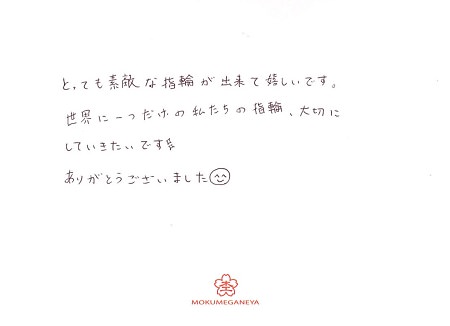 とっても素敵な指輪が出来て嬉しいです。
世界に一つだけの私たちの指輪、大切に
していきたいです!!
ありがとうございました
MOKUMEGANEYA